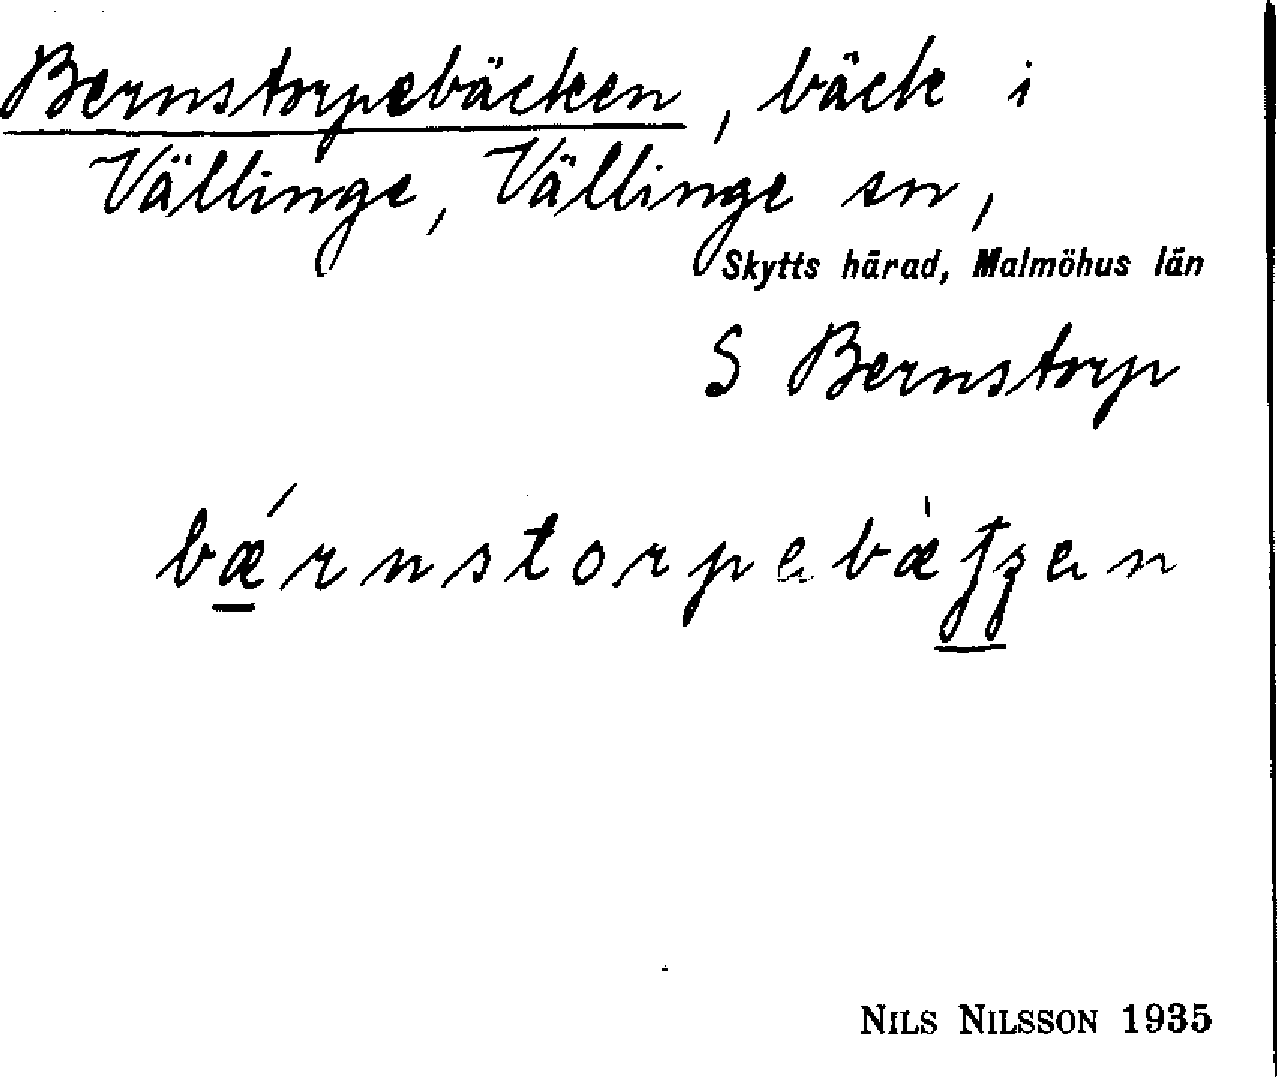 Bernstorpebäcken, bäck i
Vällinge, Vällinge sn,
Skytts härad, Malmöhus län
S Bernstorp
NILS NILSSON 1935